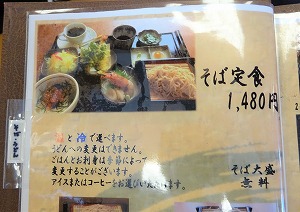 そば定食
1,480円
温と冷で選べます。
うどんへの変更はできません。
ごはんとお刺身は季節によって
変更することがございます。
アイスまたはコーヒーをお選びいただけます。
そば大盛
無料